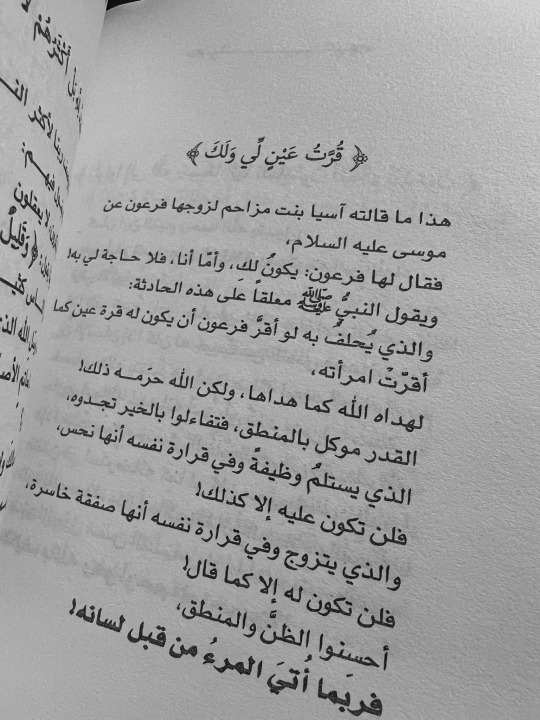 ﴿ قُرَّتُ عَيْنٍ لِّي وَلَكَ ﴾
هذا ما قالته آسيا بنت مزاحم لزوجها فرعون عن
موسى عليه السلام،
فقال لها فرعون: يكونُ لكِ، وأمَّا أنا، فلا حاجة لي به!
ويقول النبيُّ ﷺ معلقاً على هذه الحادثة:
والذي يُحلفُ به لو أقرَّ فرعون أن يكون له قرة عين كما
أقرّتْ امرأته،
لهداه الله كما هداها، ولكن الله حرَمه ذلك!
القدر موكل بالمنطق، فتفاءلوا بالخير تجدوه،
الذي يستلمُ وظيفةً وفي قرارة نفسه أنها نحس،
فلن تكون عليه إلا كذلك!
والذي يتزوج وفي قرارة نفسه أنها صفقة خاسرة،
فلن تكون له إلا كما قال!
أحسنوا الظنَّ والمنطق،
فربَما أُتيَ المرءُ من قبل لسانه!